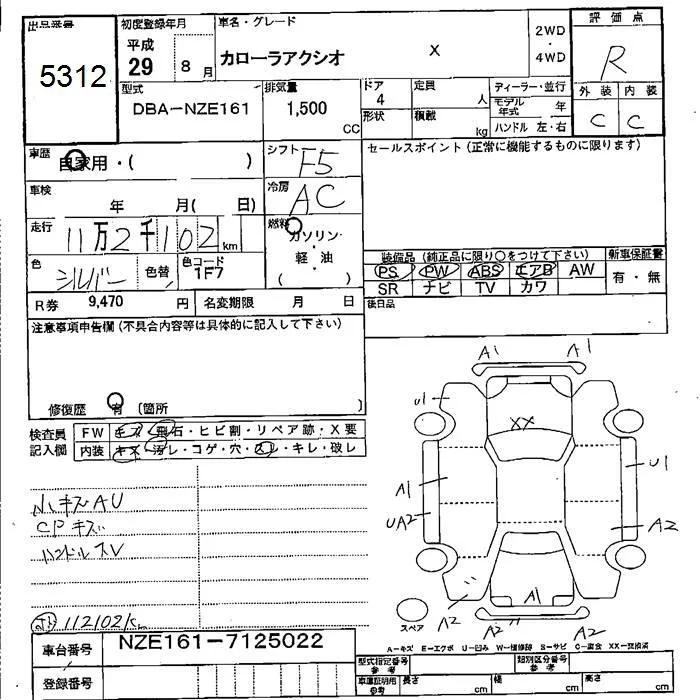 出品番号 初度登録年月 車名・グレード 評価点
5312
平成 29 8月 カローラアクシオ X 2WD・4WD R
型式 排気量 ドア 定員 ディーラー・並行 外装 内装
DBA-NZE161 1,500 CC 4 人 モデル年式 年
形状 積載 kg ハンドル 左・右 C C
車歴 自家用・( ) シフト F5 セールスポイント(正常に機能するものに限ります)
車検 年 月( 日) 冷房 AC
走行 11万2千102km 燃料 ガソリン・軽油 ( )
装備品(純正品に限り○をつけて下さい) 新車保証書
色 シルバー 色替 色コード 1F7
PS PW ABS エアB AW 有・無
SR ナビ TV カワ
R券 9,470 円 名変期限 月 日 後日品
注意事項申告欄(不具合内容等は具体的に記入して下さい)
修復歴 有 〔箇所 〕
検査員記入欄 FW キズ・飛石・ヒビ割・リペア跡・X要
内装 キズ・汚レ・コゲ・穴・スレ・キレ・破レ
A1 A1
U1
XX
A1 U1
UA2 A2
A1
A2 A2 A2
スペア
キズ AU
CPキズ
ハンドルスレ
112102K
A-キズ E-エクボ U-凹み W-補修跡 S-サビ C-腐食 XX-交換済
車台番号 NZE161-7125022
型式指定番号 参考 類別区分番号 参考
登録番号 車庫証明用 参考 長さ cm 幅 cm 高さ cm